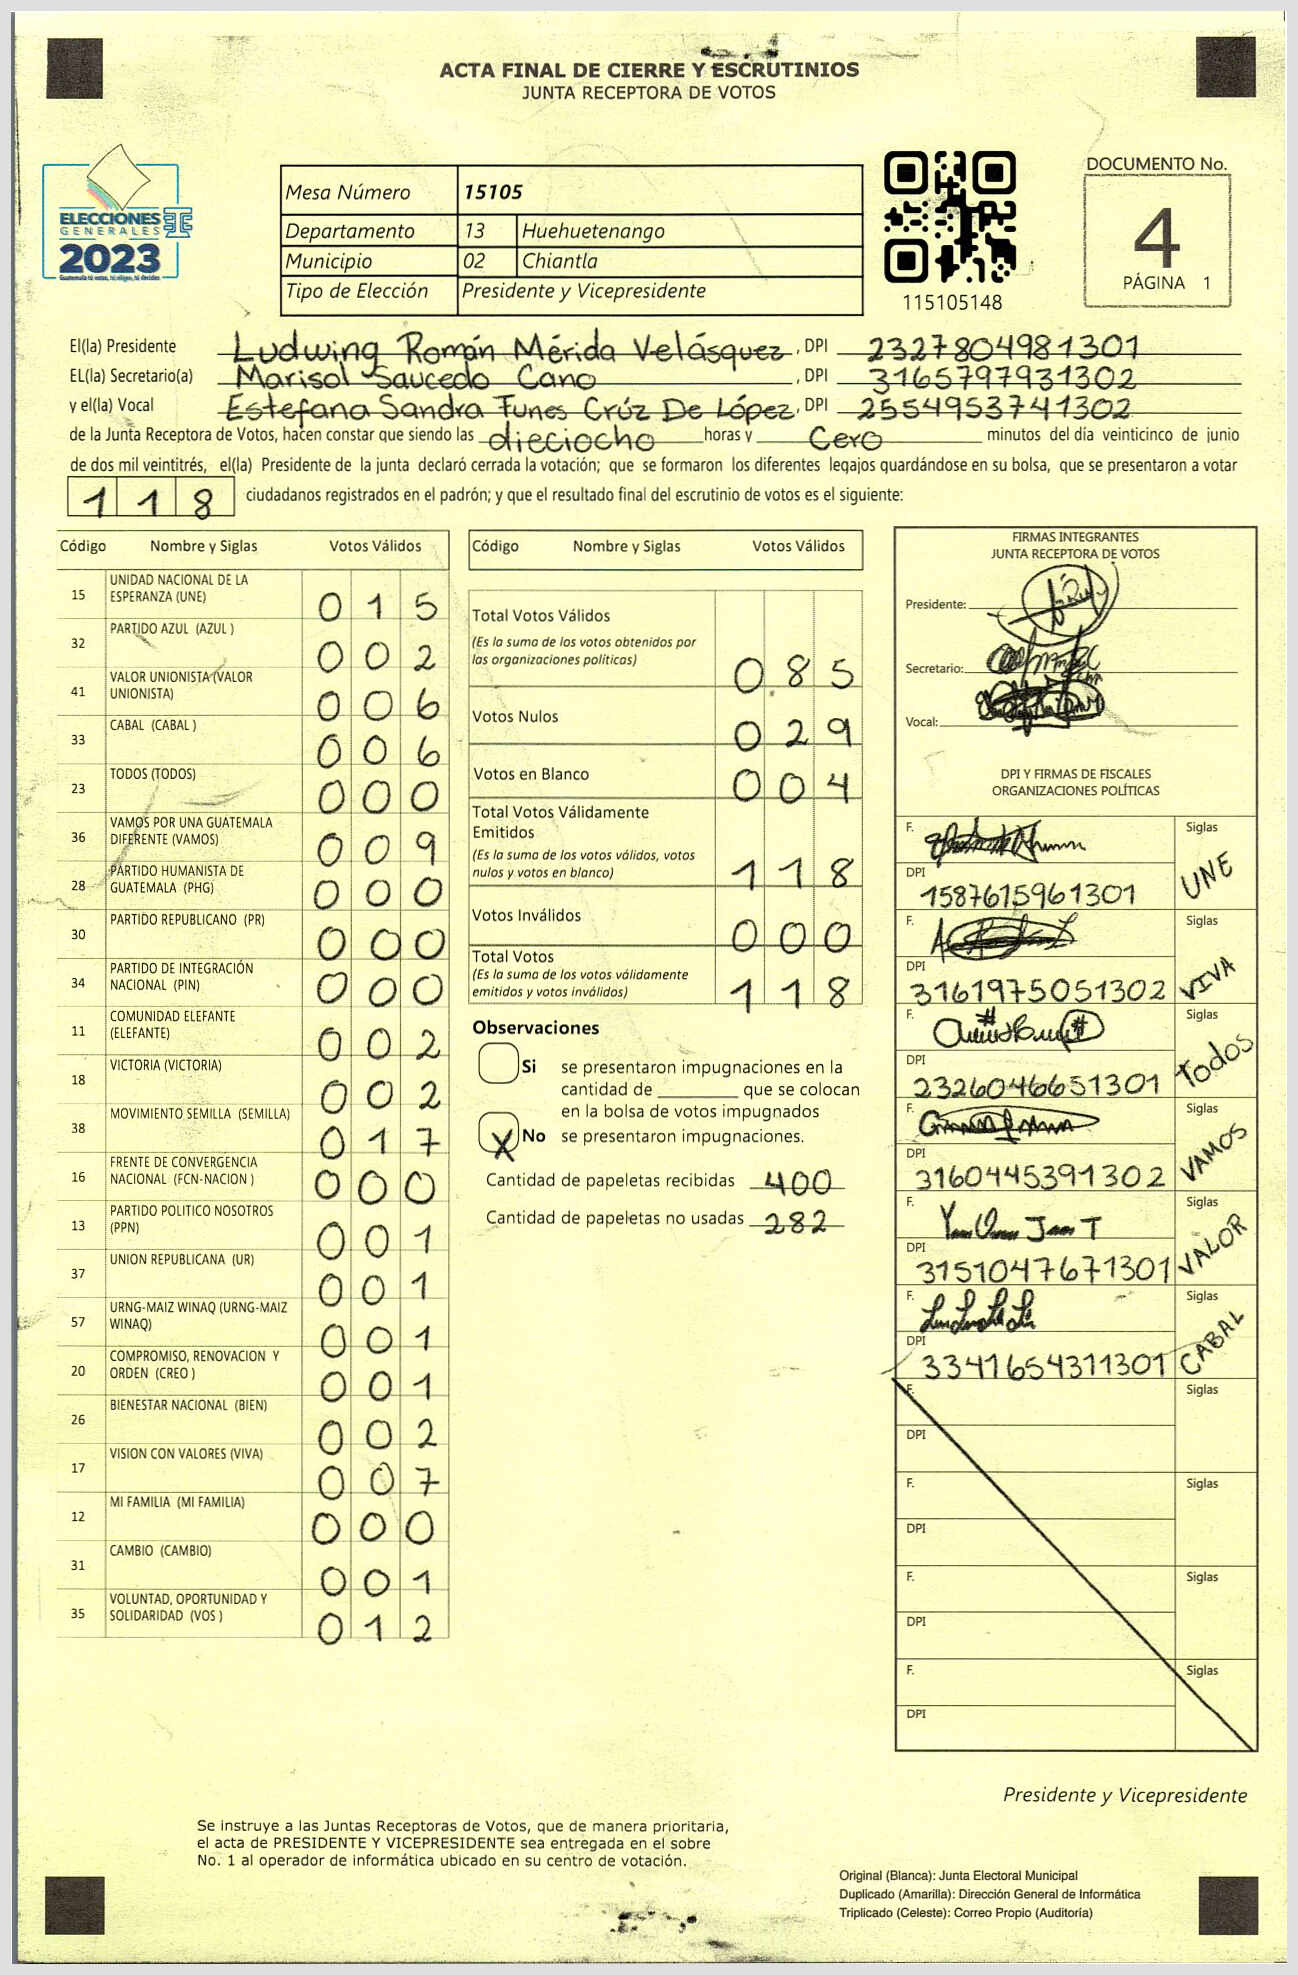 ACTA FINAL DE CIERRE Y ESCRUTINIOS
JUNTA RECEPTORA DE VOTOS
ELECCIONES
GENERALES
2023
Mesa Número 15105
Departamento 13 Huehuetenango
Municipio 02 Chiantla
Tipo de Elección Presidente y Vicepresidente
115105148
DOCUMENTO No.
4
PÁGINA 1
El(la) Presidente Ludwing Román Mérida Velásquez, DPI 2327804981301
EL(la) Secretario(a) Marisol Saucedo Cano, DPI 3165797931302
y el(la) Vocal Estefana Sandra Funes Crúz De López, DPI 2554953741302
de la Junta Receptora de Votos, hacen constar que siendo las dieciocho horas y Cero minutos del día veinticinco de junio
de dos mil veintitrés, el(la) Presidente de la junta declaró cerrada la votación; que se formaron los diferentes legajos guardándose en su bolsa, que se presentaron a votar
118 ciudadanos registrados en el padrón; y que el resultado final del escrutinio de votos es el siguiente:
Código Nombre y Siglas Votos Válidos
15 UNIDAD NACIONAL DE LA ESPERANZA (UNE) 015
32 PARTIDO AZUL (AZUL ) 002
41 VALOR UNIONISTA (VALOR UNIONISTA) 006
33 CABAL (CABAL ) 006
23 TODOS (TODOS) 000
36 VAMOS POR UNA GUATEMALA DIFERENTE (VAMOS) 009
28 PARTIDO HUMANISTA DE GUATEMALA (PHG) 000
30 PARTIDO REPUBLICANO (PR) 000
34 PARTIDO DE INTEGRACIÓN NACIONAL (PIN) 000
11 COMUNIDAD ELEFANTE (ELEFANTE) 002
18 VICTORIA (VICTORIA) 002
38 MOVIMIENTO SEMILLA (SEMILLA) 017
16 FRENTE DE CONVERGENCIA NACIONAL (FCN-NACION ) 000
13 PARTIDO POLITICO NOSOTROS (PPN) 001
37 UNION REPUBLICANA (UR) 001
57 URNG-MAIZ WINAQ (URNG-MAIZ WINAQ) 001
20 COMPROMISO, RENOVACION Y ORDEN (CREO ) 001
26 BIENESTAR NACIONAL (BIEN) 002
17 VISION CON VALORES (VIVA) 007
12 MI FAMILIA (MI FAMILIA) 000
31 CAMBIO (CAMBIO) 001
35 VOLUNTAD, OPORTUNIDAD Y SOLIDARIDAD (VOS ) 012
Código Nombre y Siglas Votos Válidos
Total Votos Válidos
(Es la suma de los votos obtenidos por
las organizaciones políticas) 085
Votos Nulos 029
Votos en Blanco 004
Total Votos Válidamente
Emitidos
(Es la suma de los votos válidos, votos
nulos y votos en blanco) 118
Votos Inválidos 000
Total Votos
(Es la suma de los votos válidamente
emitidos y votos inválidos) 118
Observaciones
Si se presentaron impugnaciones en la
cantidad de ________ que se colocan
en la bolsa de votos impugnados
X No se presentaron impugnaciones.
Cantidad de papeletas recibidas 400
Cantidad de papeletas no usadas 282
FIRMAS INTEGRANTES
JUNTA RECEPTORA DE VOTOS
Presidente:
Secretario:
Vocal:
DPI Y FIRMAS DE FISCALES
ORGANIZACIONES POLÍTICAS
F. Siglas
DPI 1587615961301 UNE
F. Siglas
DPI 3161975051302 VIVA
F. Siglas
DPI 2326046651301 Todos
F. Siglas
DPI 3160445391302 VAMOS
F. Siglas
DPI 3151047671301 VALOR
F. Siglas
DPI 3341654311301 CABAL
F. Siglas
DPI
F. Siglas
DPI
F. Siglas
DPI
F. Siglas
DPI
Presidente y Vicepresidente
Se instruye a las Juntas Receptoras de Votos, que de manera prioritaria,
el acta de PRESIDENTE Y VICEPRESIDENTE sea entregada en el sobre
No. 1 al operador de informática ubicado en su centro de votación.
Original (Blanca): Junta Electoral Municipal
Duplicado (Amarilla): Dirección General de Informática
Triplicado (Celeste): Correo Propio (Auditoría)